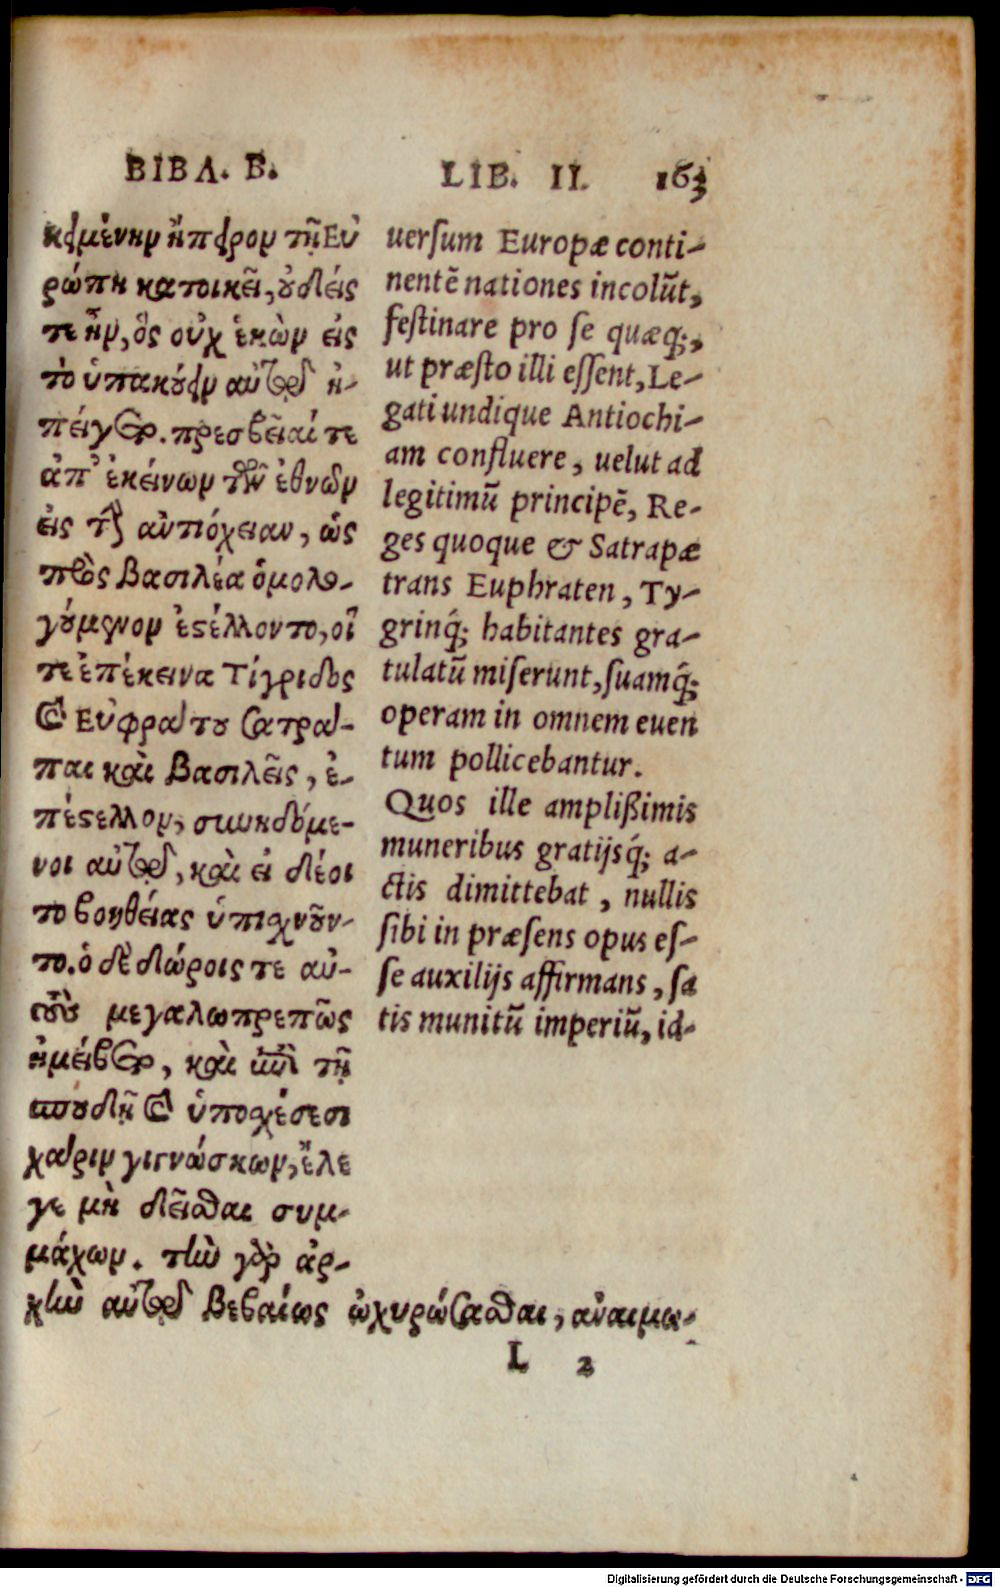 ΒΙΒΛ. Β.
κειμένην ἤπειρον τῇ Εὐ
ρώπῃ κατοικεῖ, οὐδείς
τε ἦν, ὃς οὐχ ἑκὼν εἰς
τὸ ὑπακούειν αὐτοῦ ἠ-
πείγετο. πρεσβεῖαί τε
ἀπ' ἐκείνων τῶν ἐθνῶν
εἰς τὴν ἀντιόχειαν, ὡς
πρὸς βασιλέα ὁμολο-
γούμενον ἐστέλλοντο, οἵ
τε ἐπέκεινα Τίγριδος
καὶ Εὐφράτου σατρά-
παι καὶ βασιλεῖς, ἐ-
πέστελλον, συνηδόμε-
νοι αὐτοῦ, καὶ εἰ δέοι
το βοηθείας ὑπισχνοῦν-
το. ὁ δὲ δώροις τε αὐ-
τοὺς μεγαλωπρεπῶς
ἠμείβετο, καὶ ἐπὶ τῇ
σπουδῇ καὶ ὑποσχέσεσι
χάριν γιγνώσκων, ἔλε
γε μὴ δεῖσθαι συμ-
μάχων. τὴν γὰρ ἀρ-
χὴν αὐτοῦ βεβαίως ὠχυρώσασθαι, ἀναιμω-
LIB. II. 163
uersum Europæ conti-
nentē nationes incolūt,
festinare pro se quæq;,
ut præsto illi essent, Le-
gati undique Antiochi-
am confluere, uelut ad
legitimū principē, Re-
ges quoque & Satrapæ
trans Euphraten, Ty-
grinq́; habitantes gra-
tulatū miserunt, suamq́;
operam in omnem euen
tum pollicebantur.
Quos ille amplißimis
muneribus gratijsq́; a-
ctis dimittebat, nullis
sibi in præsens opus es-
se auxilijs affirmans, sa
tis munitū imperiū, id-
L 2
Digitalisierung gefördert durch die Deutsche Forschungsgemeinschaft - DFG